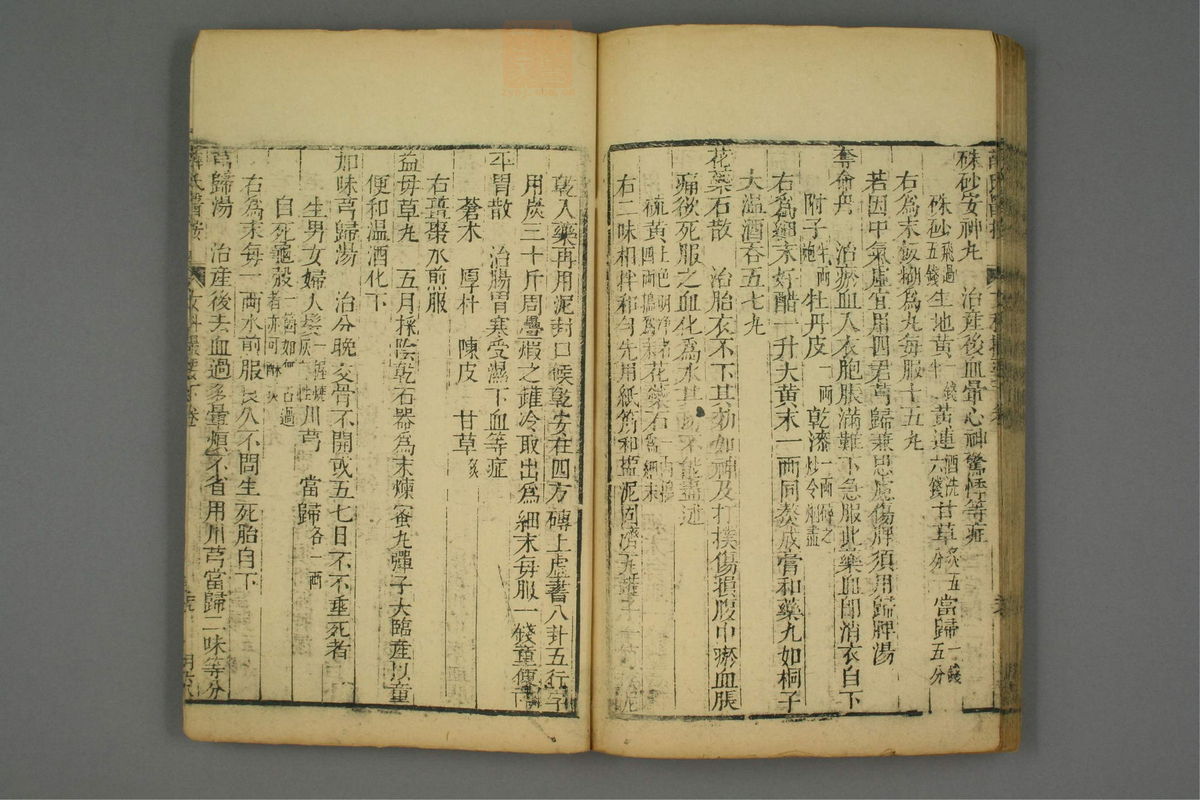 硃砂安神丸　治產後血暈心神驚悸等症
硃砂五錢飛過生地黃半錢黃連酒洗六錢甘草炙五分當歸一錢五分
右爲末飯糊爲丸每服十五丸
若因中氣虛宜用四君芎歸兼思慮傷脾須用歸脾湯
奪命丹　治瘀血入衣胞脹滿難下急服此藥血卽消衣自下
附子半兩炮　牡丹皮一兩　乾漆一兩碎之炒令烟盡
右爲細末好醋一升大黃末一兩同熬成膏和藥丸如桐子
大溫酒吞五七丸
花蘂石散　治胎衣不下其効如神及打撲傷損腹中瘀血脹
痛欲死服之血化爲水其功不能盡述
硫黃上色明淨者四兩搗爲末花蘂石一兩搗爲細末
右二味相拌和勻先用紙筋和鹽泥固濟瓦罐子一枚泥
乾入藥再用泥封口候乾安在四方磚上虛書八卦五行字
用炭三十斤周疊煆之離冷取出爲細末每服一錢童便下
平胃散　治腸胃寒受濕下血等症
蒼朮　厚朴　陳皮　甘草炙
右薑棗水煎服
益母草丸　五月採陰乾石器爲末煉蜜丸彈子大臨產以童
便和溫酒化下
加味芎歸湯　治分娩交骨不開或五七日不下垂死者
生男女婦人髮一握燒灰存性川芎　當歸各一兩
自死龜殼一箇如無占過者亦可酥炙
右爲末每一兩水煎服良久不問生死胎自下
芎歸湯　治產後去血過多暈煩不省用川芎當歸二味等分
薛氏醫按